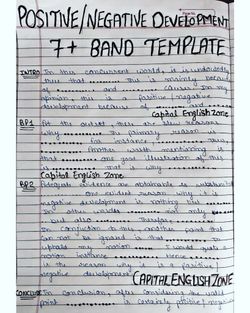 POSITIVE/NEGATIVE DEVELOPMENT
7+ BAND TEMPLATE
INTRO In this concurrent world, it is undoubtedly
true that ........ This is mainly because
of ........ and ........ causes. In my
opinion this is a positive/negative
development because of ........ and ........
Capital English Zone
BP1 At the outset, there are few reasons
why ........ The primary reason is
........ For instance, ........
Another worth mentioning is
that ........ one good illustration of this
is ........ that ........
Capital English Zone
BP2 Adequate evidence are obtainable to substantiate
........ One evident reason why a
negative development is nothing but ........
In other words ........ not only ........
but also ........ Therefore
In conjuction to this, another point that
can not be ignored that ........ to
uphold my notion ........ I would quote a
common instance ........ Hence
is the reason why it is a positive/
negative development.
CAPITAL ENGLISH ZONE
CONCLUSION In conclusion, after considering the
point ........ is certainly positive/negative